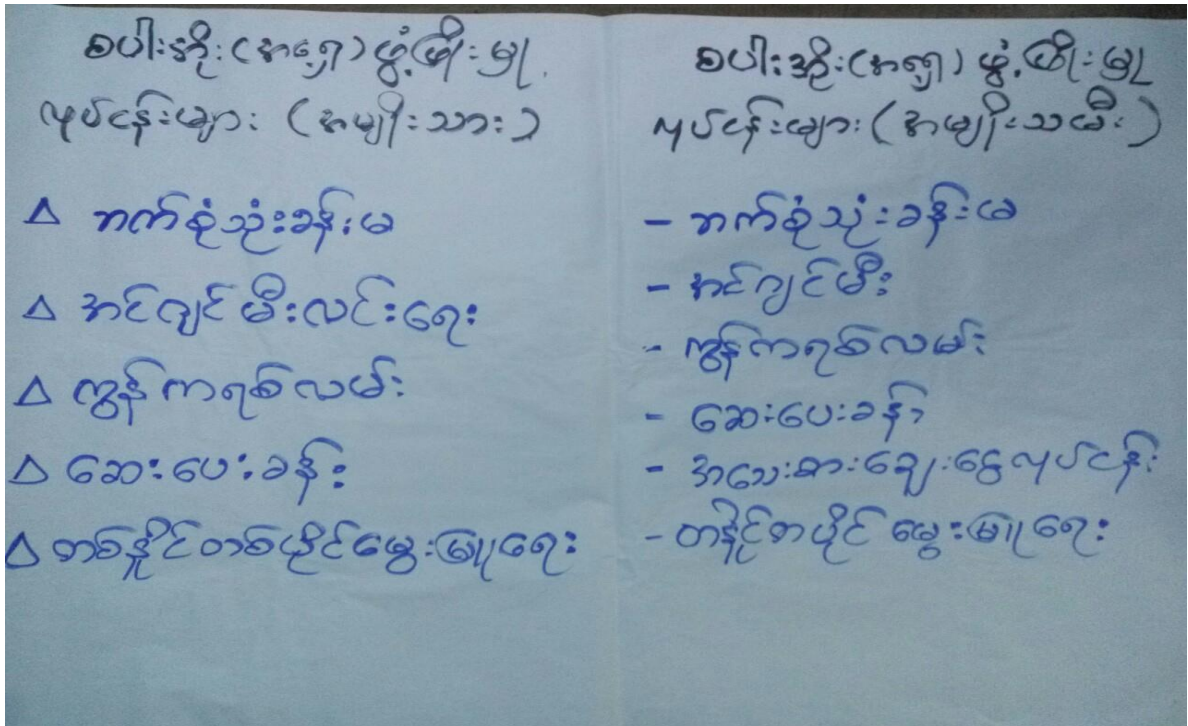 စပါးအိုး(အရှေ့)ဖွံ့ဖြိုးမှု
လုပ်ငန်းများ (အမျိုးသား)
△ ဘက်စုံသုံးခန်းမ
△ အင်ဂျင်မီးလင်းရေး
△ ကွန်ကရစ်လမ်း
△ ဆေးပေးခန်း
△ တစ်နှိုင်တစ်ပိုင်မွေးမြူရေး
စပါးအိုး(အရှေ့)ဖွံ့ဖြိုးမှု
လုပ်ငန်းများ (အမျိုးသမီး)
- ဘက်စုံသုံးခန်းမ
- အင်ဂျင်မီး
- ကွန်ကရစ်လမ်း
- ဆေးပေးခန်း
- အသေးစားချေးငွေလုပ်ငန်း
- တနိုင်တပိုင် မွေးမြူရေး